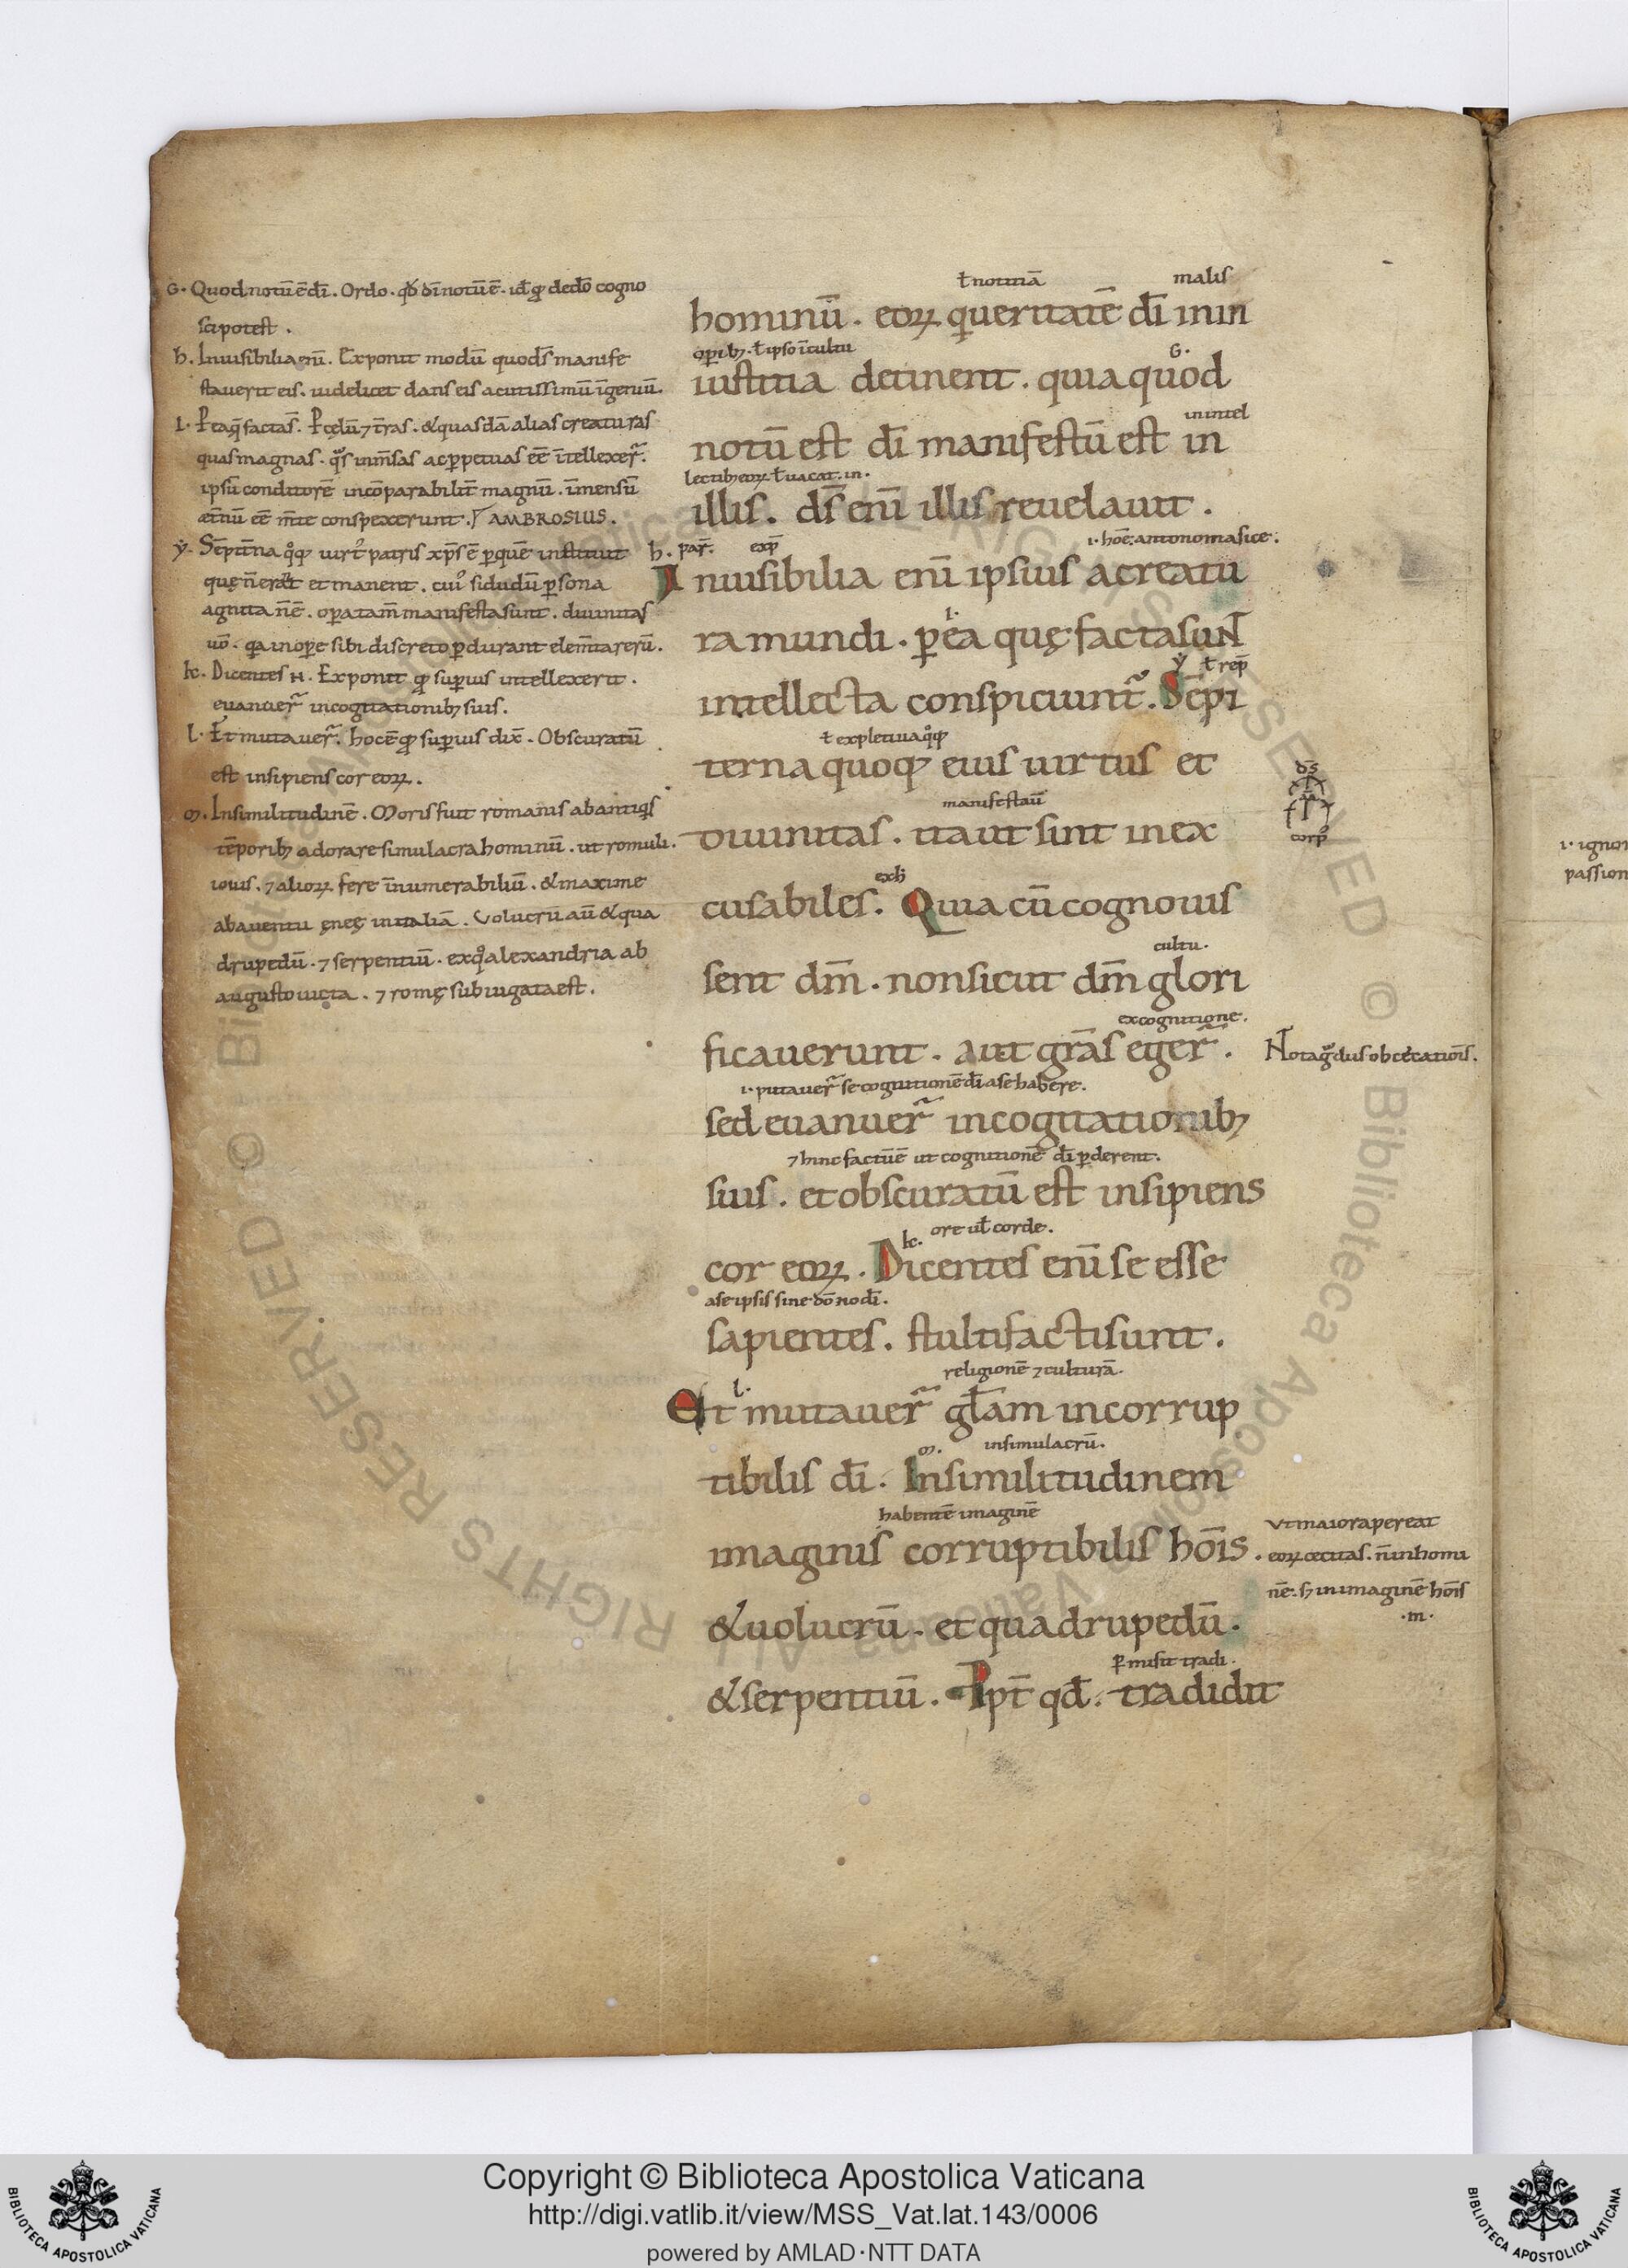 G. Quod notū ē dī. Ordo. qđ dī notū ē. id ē qđ de dō cogno
sci potest.
h. Inuisibilia enī. Exponit modū quo ds̄ manife
stauerit eis. uidelicet dans eis acutissimū īgeniū.
I. P ea q̄ facta s̄. P cęlū ⁊ t̄ras. & quasdā alias creaturas
quas magnas. īmsas ac ꝑpetuas eē ītellexer̄.
ipsū conditorē incōparabilit̄ magnū. īmensū
æt̄nū eē m̄te conspexerunt. AMBROSIUS.
ẏ. Sēpit̄na qͦꝗ uirtꝰ patris xp̄s ē ꝑ quē instituit
quę n̄ erāt et manent. cuiꝰ si dudū ꝑsona
agnita n̄ ē. oꝑa tam̄ manifesta sunt. diuinitas
uō. qa in oꝑe sibi discreto ꝑdurant elem̄ta rerū.
k. Dicentes H. Exponit qđ suꝑius intellexerit.
euanuer̄ in cogitationibꝫ suis.
l. Et mutauer̄. hoc ē qđ suꝑius dix̄. Obscuratū
est insipiens cor eoꝝ.
m. In similitudinē. Moris fuit romanis ab antiqis
tēporibꝫ adorare simulacra hominū. ut romuli.
iouis. ⁊ alioꝝ fere īnumerabiliū. & maxime
ab aduentu ęneę in italiā. Volucrū aū & qua
drupedū. ⁊ serpentiū. ex qͦ alexandria ab
augusto uicta. ⁊ romę subiugata est.
ł notitiā malis
hominū. eoꝝ q ueritatē dī in in
oꝑibꝫ. ł ipso īcultu G.
iustitia detinent. quia quod
in intel
notū est dī manifestū est in
lectibꝫ eoꝝ ł uacat. in.
illis. ds̄ enī illis reuelauit.
h. par̄. exp̄ .i. hōē. antonomasice.
Inuisibilia enī ipsius a creatu
I.
ra mundi. ꝑ ea quę facta sunt
ẏ ł rep̄
intellecta conspiciunt᷑. Sēpi
ł expletiua qͦꝗ
terna quoꝗ eius uirtus et
manifestaū
diuinitas. ita ut sint inex
exh
cusabiles. Quia cū cognouis
cultu.
sent dm̄. non sicut dm̄ glori
ex cognitione.
ficauerunt. aut grās eger̄.
.i. putauer̄ se cognitionē dī a se habere.
sed euanuer̄ in cogitationibꝫ
⁊ hinc factū ē ut cognitionē dī ꝑderent.
suis. et obscuratū est insipiens
k. ore uł corde.
cor eoꝝ. Dicentes enī se esse
a se ipsis sine dōno dī.
sapientes. stulti facti sunt.
l. religionē ⁊ culturā.
Et mutauer̄ głam incorrup
m. in simulacrū.
tibilis dī. In similitudinem
habentē imaginē
imaginis corruptibilis hōis.
& uolucrū. et quadrupedū.
ꝑmisit tradi.
& serpentiū. Ppt̄ qđ. tradidit
ds̄
corpꝰ
Nota gͣdus obcecatiōis.
Vt maior apereat
eoꝝ cecitas. n̄ in homi
nē. sꝫ in imaginē hōis
.m.
i. ignor
passion
Copyright © Biblioteca Apostolica Vaticana
http://digi.vatlib.it/view/MSS_Vat.lat.143/0006
powered by AMLAD·NTT DATA
BIBLIOTECA APOSTOLICA VATICANA
BIBLIOTECA APOSTOLICA VATICANA